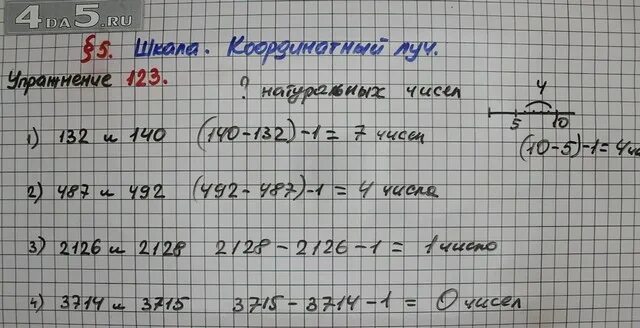 4DA5.RU
§5. Шкала. Координатный луч.
Упражнение 123.
? натуральных чисел
4
5 10
(10-5)-1=4чи
1) 132 и 140 (140-132)-1= 7 чисел
2) 487 и 492 (492-487)-1= 4 числа
3) 2126 и 2128 2128-2126-1= 1 число
4) 3714 и 3715 3715-3714-1= 0 чисел